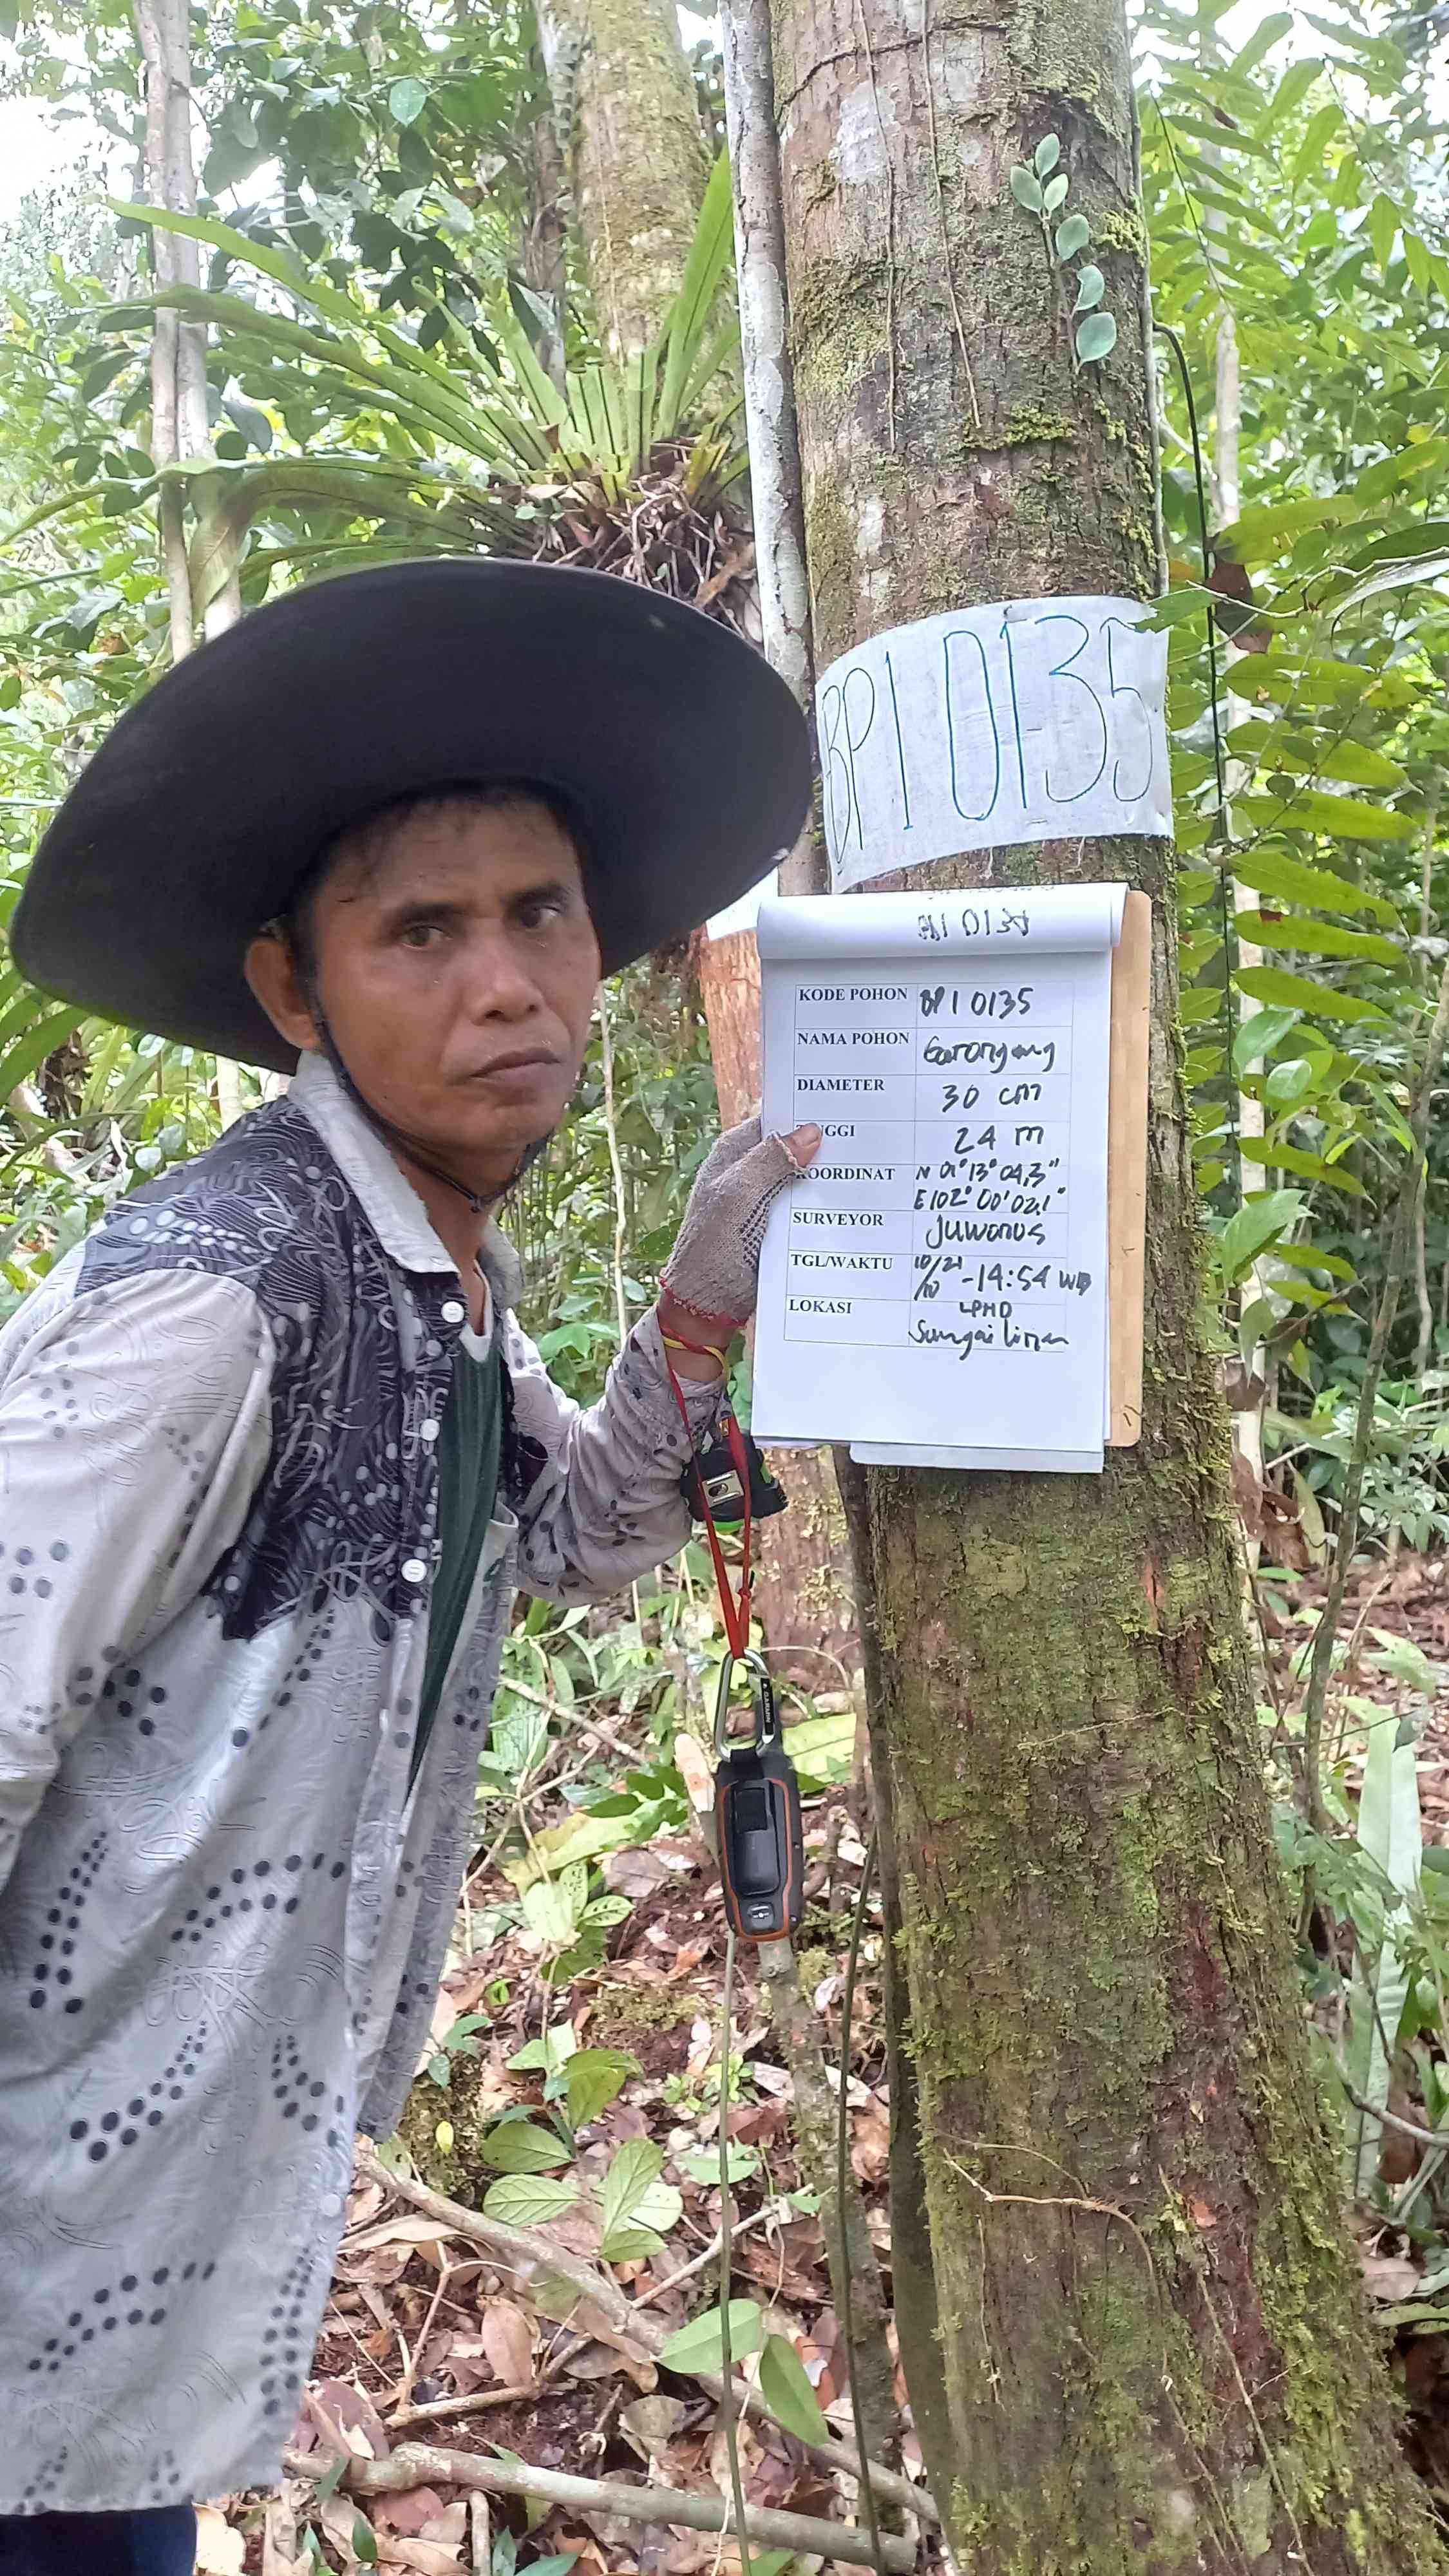 BPI 0135
KODE POHON BPI 0135
NAMA POHON Geronggang
DIAMETER 30 cm
TINGGI 24 m
KOORDINAT N 01° 13° 04,3"
E 102° 00' 02,1"
SURVEYOR Juwanos
TGL/WAKTU 10/21/10 - 14:54 WIB
LOKASI LPHD
Sungai linau
GARMIN